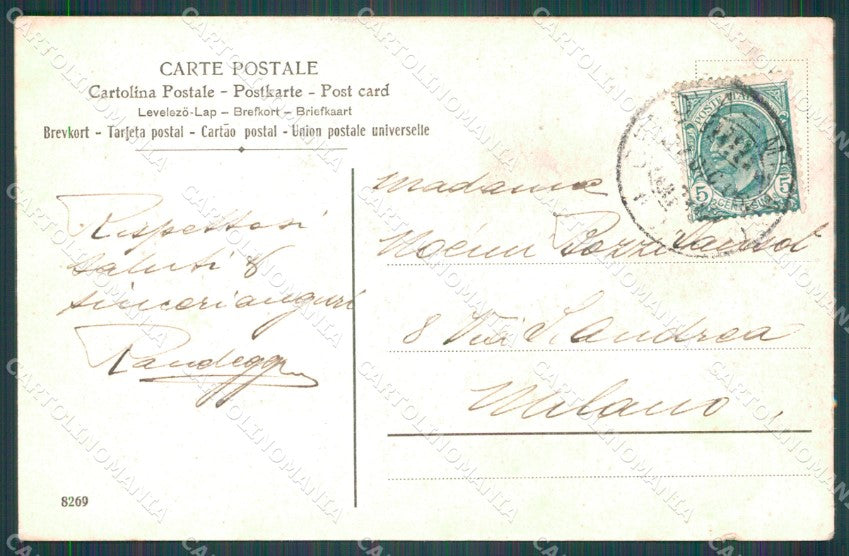 CARTE POSTALE
Cartolina Postale - Postkarte - Post card
Levelező-Lap - Brefkort - Briefkaart
Brevkort - Tarjeta postal - Cartão postal - Union postale universelle
Rispettosi
saluti &
sinceri auguri
Randegg
Madama
Noemi Pozzi
8 Via S. Andrea
Milano,
POSTE
5 5
CENTESIMI
8269
CARTOLINOMANIA